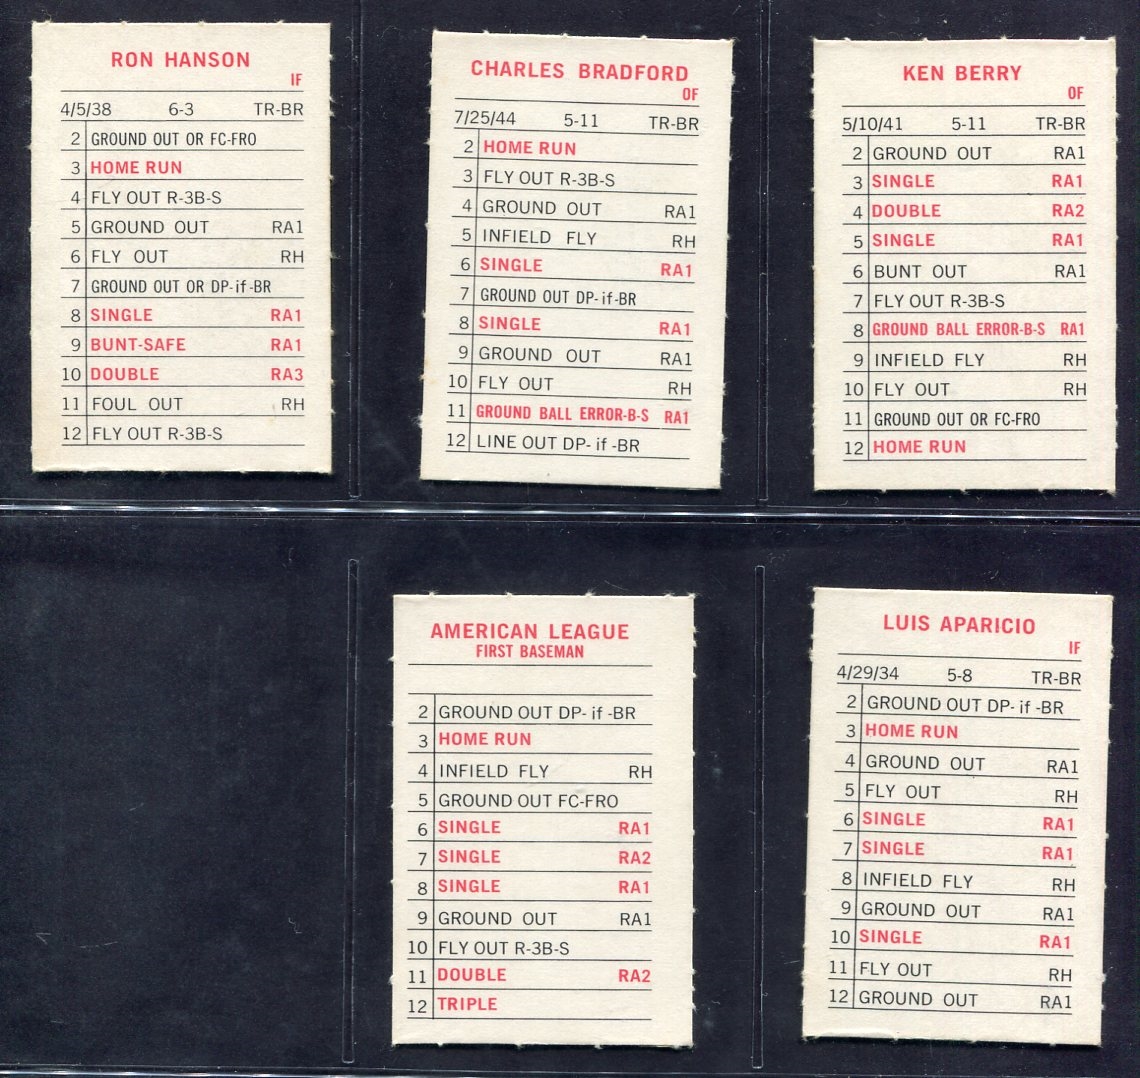 RON HANSON
IF
4/5/38 6-3 TR-BR
2 GROUND OUT OR FC-FRO
3 HOME RUN
4 FLY OUT R-3B-S
5 GROUND OUT RA1
6 FLY OUT RH
7 GROUND OUT OR DP-if-BR
8 SINGLE RA1
9 BUNT-SAFE RA1
10 DOUBLE RA3
11 FOUL OUT RH
12 FLY OUT R-3B-S
CHARLES BRADFORD
OF
7/25/44 5-11 TR-BR
2 HOME RUN
3 FLY OUT R-3B-S
4 GROUND OUT RA1
5 INFIELD FLY RH
6 SINGLE RA1
7 GROUND OUT DP-if-BR
8 SINGLE RA1
9 GROUND OUT RA1
10 FLY OUT RH
11 GROUND BALL ERROR-B-S RA1
12 LINE OUT DP-if-BR
KEN BERRY
OF
5/10/41 5-11 TR-BR
2 GROUND OUT RA1
3 SINGLE RA1
4 DOUBLE RA2
5 SINGLE RA1
6 BUNT OUT RA1
7 FLY OUT R-3B-S
8 GROUND BALL ERROR-B-S RA1
9 INFIELD FLY RH
10 FLY OUT RH
11 GROUND OUT OR FC-FRO
12 HOME RUN
AMERICAN LEAGUE
FIRST BASEMAN
2 GROUND OUT DP-if-BR
3 HOME RUN
4 INFIELD FLY RH
5 GROUND OUT FC-FRO
6 SINGLE RA1
7 SINGLE RA2
8 SINGLE RA1
9 GROUND OUT RA1
10 FLY OUT R-3B-S
11 DOUBLE RA2
12 TRIPLE
LUIS APARICIO
IF
4/29/34 5-8 TR-BR
2 GROUND OUT DP-if-BR
3 HOME RUN
4 GROUND OUT RA1
5 FLY OUT RH
6 SINGLE RA1
7 SINGLE RA1
8 INFIELD FLY RH
9 GROUND OUT RA1
10 SINGLE RA1
11 FLY OUT RH
12 GROUND OUT RA1